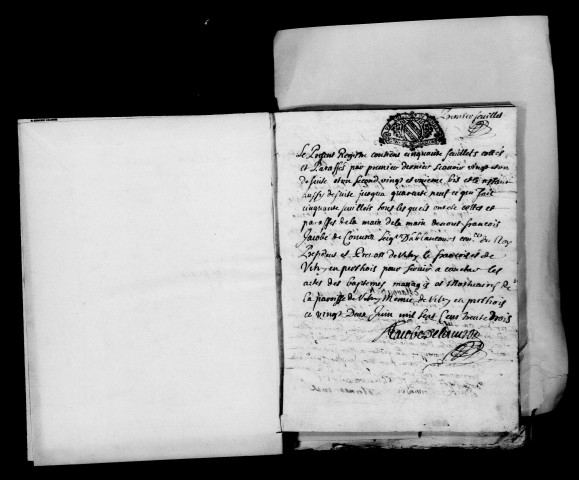 Premier feuillet
Le Present Registre contient cinquante feuillets cottés
et Paraffés par premier dernier Scavoir vingt un
de suite et un second vingt et unieme bis et le restant
aussy de suite jusqua quarante neuf ce qui fait
cinquante feuillets tous lesquels ont été cottes et
paraffes de la main de nous francois
Jacobé de Seig. D'ablancourt con.er du Roy
President et Prevost de Vitry le francois et de
Vitry en perthois pour servir a coucher les
actes des baptemes mariages et Mortuaires de
La paroisse de Vitry en perthois
ce vingt Deux Juin mil sept Cent trente trois
Jacobé